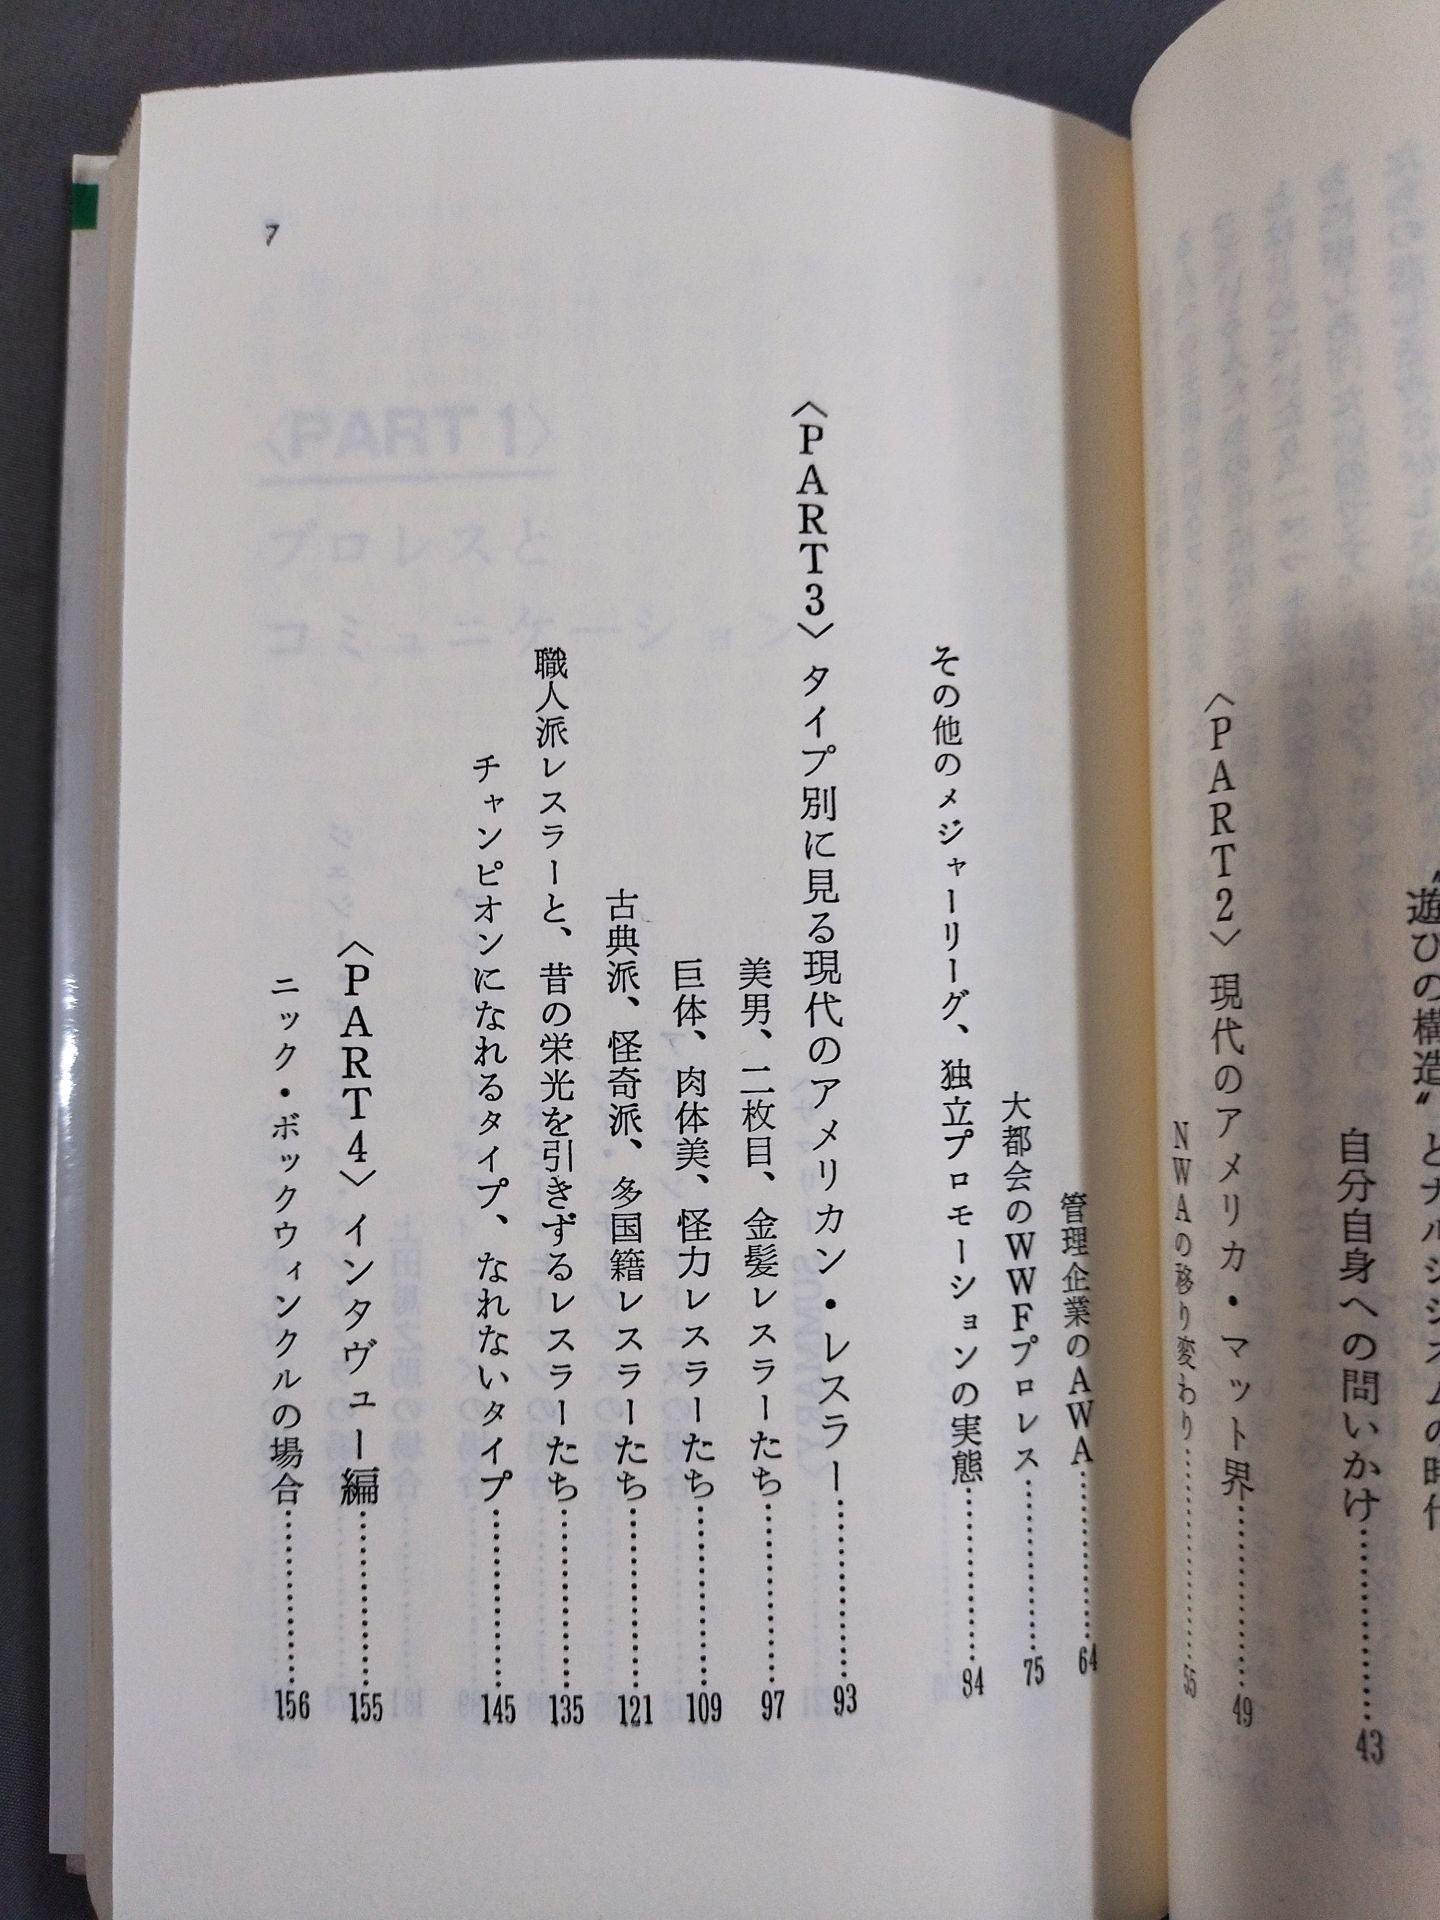 〝遊びの構造〟とナルシシズムの時代
自分自身への問いかけ…………43
〈PART2〉現代のアメリカ・マット界…………49
NWAの移り変わり…………55
管理企業のAWA…………64
大都会のWWFプロレス…………75
その他のメジャーリーグ、独立プロモーションの実態…………84
〈PART3〉タイプ別に見る現代のアメリカン・レスラー…………93
美男、二枚目、金髪レスラーたち…………97
巨体、肉体美、怪力レスラーたち…………109
古典派、怪奇派、多国籍レスラーたち…………121
職人派レスラーと、昔の栄光を引きずるレスラーたち…………135
チャンピオンになれるタイプ、なれないタイプ…………145
〈PART4〉インタヴュー編…………155
ニック・ボックウィンクルの場合…………156
7
〈PART1〉
プロレスと
コミュニケーション